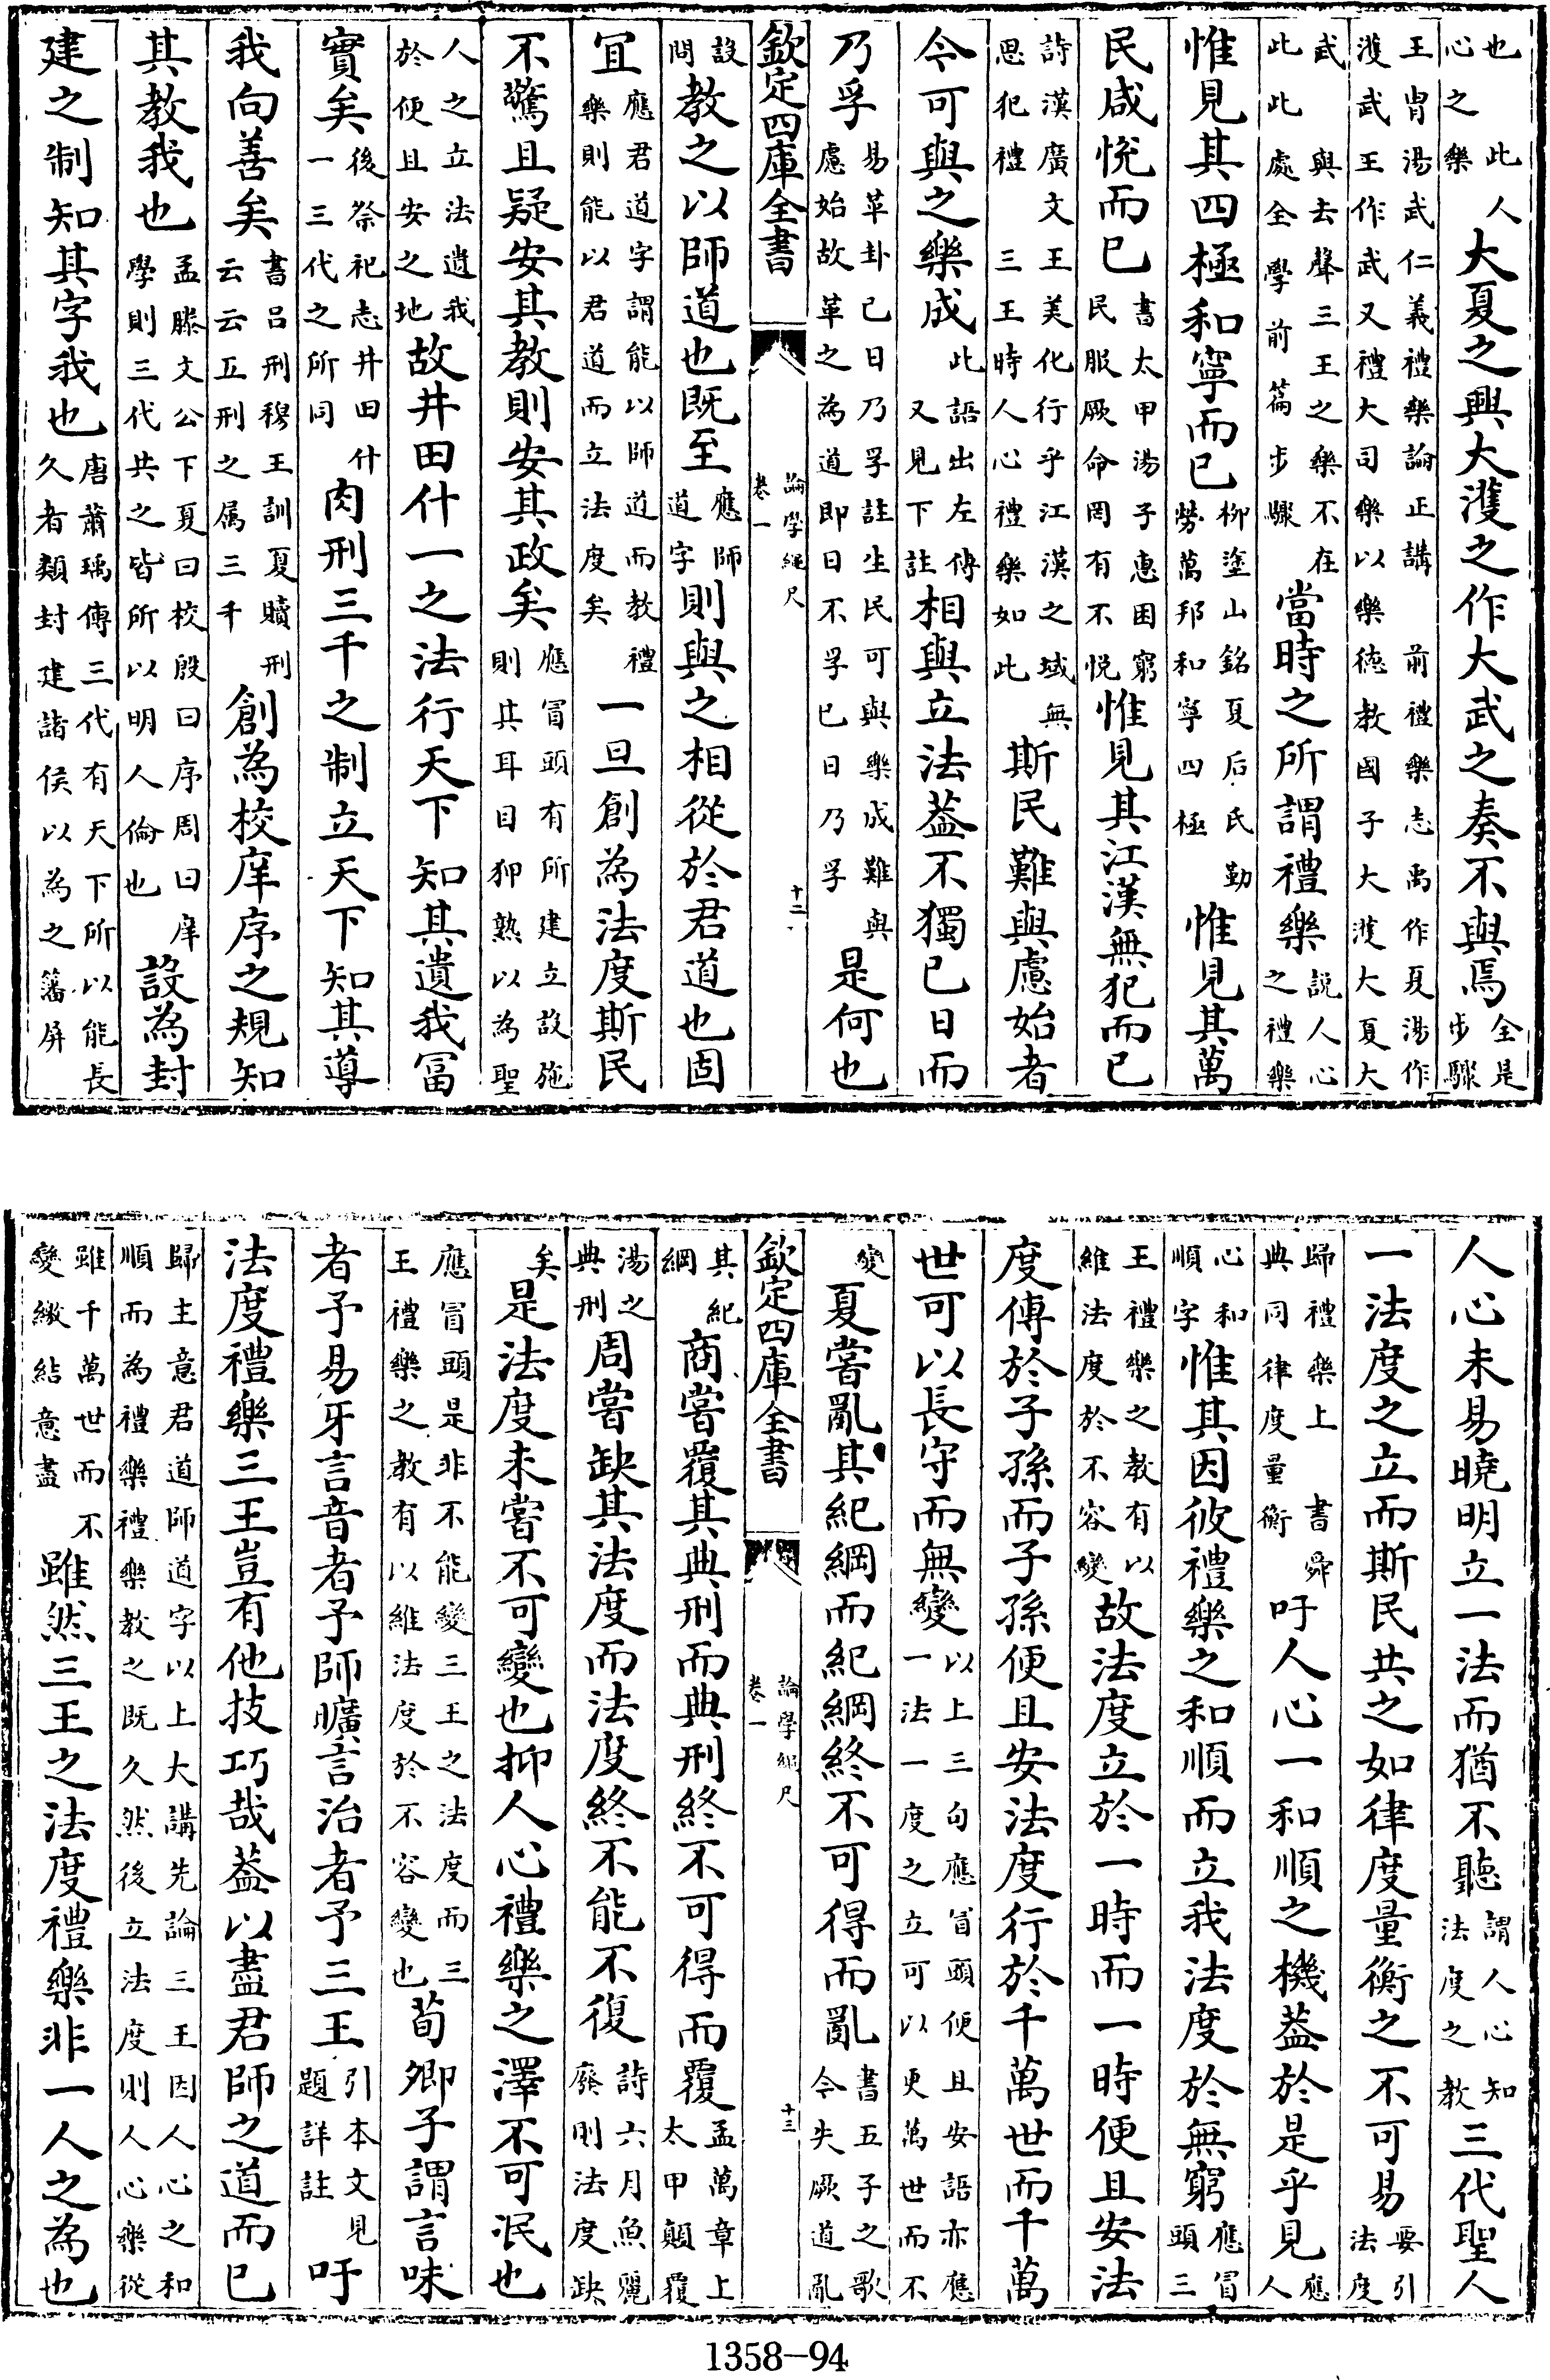 也此人心之樂大夏之興大濩之作大武之奏不與焉全是步驟
王胄湯武仁義禮樂論正講前禮樂志禹作夏湯作濩武王作武又禮大司樂以樂德教國子大濩大夏大
武與去聲三王之樂不在此此處全學前篇步驟當時之所謂禮樂說人心之禮樂
惟見其四極和寧而已柳塗山銘夏后氏勤勞萬邦和寧四極惟見其萬
民咸悅而已書太甲湯子惠困窮民服厥命罔有不悅惟見其江漢無犯而已
詩漢廣文王美化行乎江漢之域無思犯禮三王時人心禮樂如此斯民難與慮始者
今可與之樂成此語出左傳又見下註相與立法蓋不獨已日而
乃孚易革卦已日乃孚註生民可與樂成難與慮始故革之為道即日不孚已日乃孚是何也
欽定四庫全書 論學繩尺 卷一 十二
設問教之以師道也既至應師道字則與之相從於君道也固
宜應君道字謂能以師道而教禮樂則能以君道而立法度矣一旦創為法度斯民
不驚且疑安其教則安其政矣應冒頭有所建立設施則其耳目狎熟以為聖
人之立法遺我於便且安之地故井田什一之法行天下知其遺我富
實矣後祭祀志井田什一三代之所同肉刑三千之制立天下知其導
我向善矣書呂刑穆王訓夏贖刑云云五刑之属三千創為校庠序之規知
其教我也孟滕文公下夏曰校殷曰序周曰庠學則三代共之皆所以明人倫也設為封
建之制知其字我也唐蕭瑀傳三代有天下所以能長久者類封建諸侯以為之藩屏
人心未易曉明立一法而猶不聽謂人心知法度之教三代聖人
一法度之立而斯民共之如律度量衡之不可易要引法度
歸禮樂上書舜典同律度量衡吁人心一和順之機蓋於是乎見應人
心和順字惟其因彼禮樂之和順而立我法度於無窮應冒頭三
王禮樂之教有以維法度於不容變故法度立於一時而一時便且安法
度傳於子孫而子孫便且安法度行於千萬世而千萬
世可以長守而無變以上三句應冒頭便且安語亦應一法一度之立可以更萬世而不
變夏嘗亂其紀綱而紀綱終不可得而亂書五子之歌今失厥道亂
其紀綱商嘗覆其典刑而典刑終不可得而覆孟萬章上太甲顛覆
湯之典刑周嘗缺其法度而法度終不能不復詩六月魚麗廢則法度缺
欽定四庫全書 論學繩尺 卷一 十三
矣是法度未嘗不可變也抑人心禮樂之澤不可泯也
應冒頭是非不能變三王之法度而三王禮樂之教有以維法度於不容變也荀卿子謂言味
者予易牙言音者予師曠言治者予三王引本文見題詳註吁
法度禮樂三王豈有他技巧哉蓋以盡君師之道而已
歸主意君道師道字以上大講先論三王因人心之和順而為禮樂禮樂教之既久然後立法度則人心樂從
雖千萬世而不變繳結意盡雖然三王之法度禮樂非一人之為也
1358-94